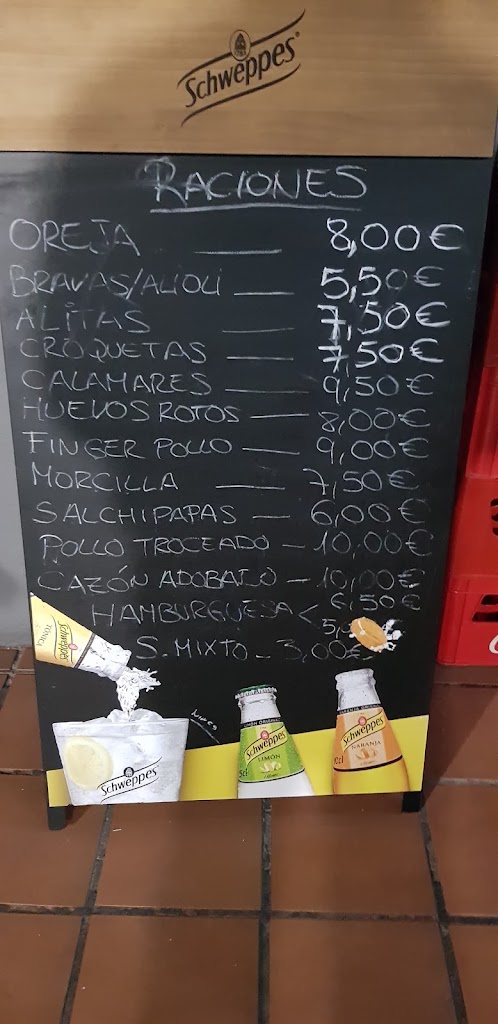 Schweppes
RACIONES
OREJA 8,00€
BRAVAS/ALIOLI 5,50€
ALITAS 7,50€
CROQUETAS 7,50€
CALAMARES 9,50€
HUEVOS ROTOS 8,00€
FINGER POLLO 9,00€
MORCILLA 7,50€
SALCHIPAPAS 6,00€
POLLO TROCEADO - 10,00€
CAZÓN ADOBADO - 10,00€
HAMBURGUESA < 6,50€
5,
S. MIXTO - 3,00€
Schweppes
TÓNICA
Schweppes
Schweppes
LIMÓN
Schweppes
NARANJA